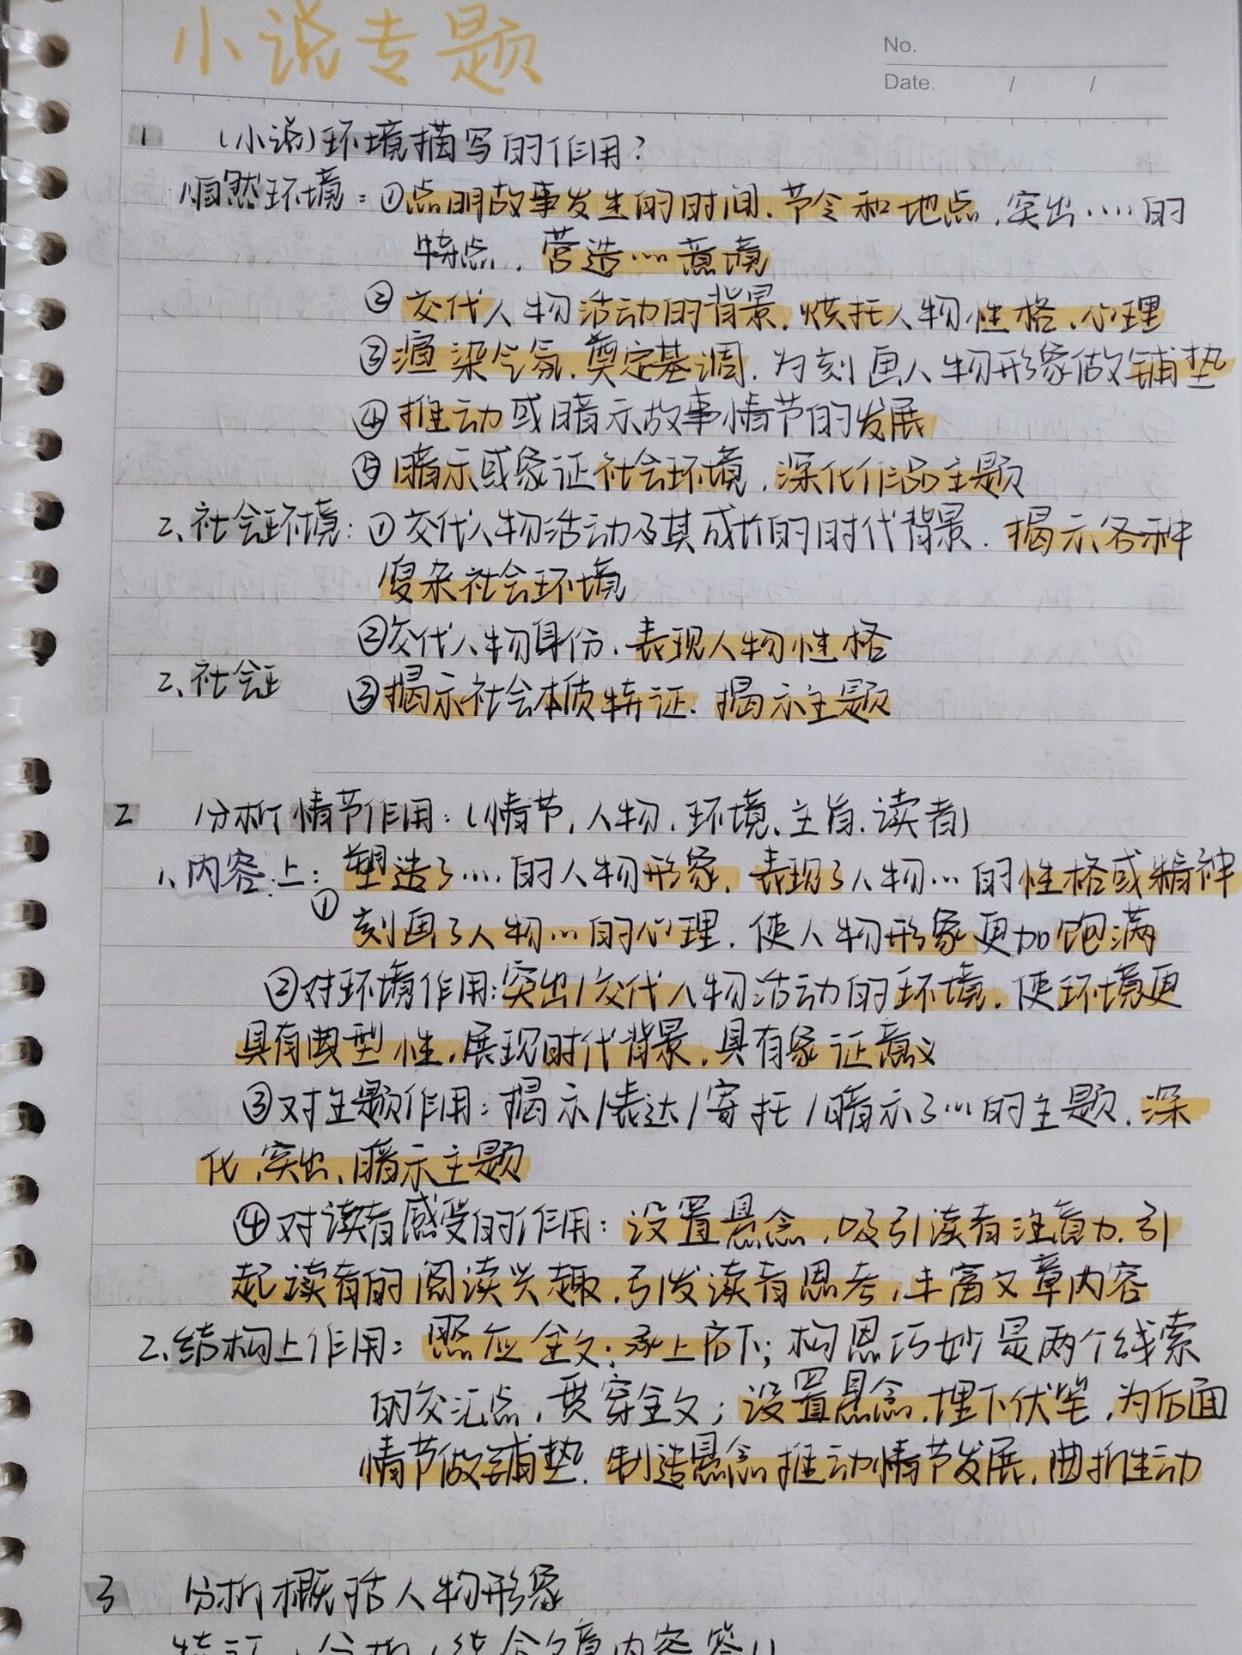 小说专题
No.
Date. / /
1 (小说)环境描写的作用?
1、自然环境:①点明故事发生的时间、节令和地点,突出……的
特点,营造…意境
②交代人物活动的背景,烘托人物性格、心理
③渲染气氛、奠定基调,为刻画人物形象做铺垫
④推动或暗示故事情节的发展
⑤暗示或象征社会环境,深化作品主题
2、社会环境:①交代人物活动及其成长的时代背景,揭示各种
复杂社会环境
②交代人物身份,表现人物性格
2、社会
③揭示社会本质特证,揭示主题
2 分析情节作用:(情节,人物,环境、主旨、读者)
1、内容上:①塑造了…的人物形象,表现了人物…的性格或精神
刻画了人物…的心理,使人物形象更加饱满
②对环境作用:突出/交代人物活动的环境,使环境更
具有典型性,展现时代背景,具有象证意义
③对主题作用:揭示/表达/寄托/暗示了…的主题,深
化、突出、暗示主题
④对读者感受的作用:设置悬念,吸引读者注意力,引
起读者的阅读兴趣,引发读者思考,丰富文章内容
2、结构上作用:照应全文;承上启下;构思巧妙是两个线索
的交汇点,贯穿全文;设置悬念,埋下伏笔,为后面
情节做铺垫,制造悬念推动情节发展,曲折生动
3 分析概括人物形象